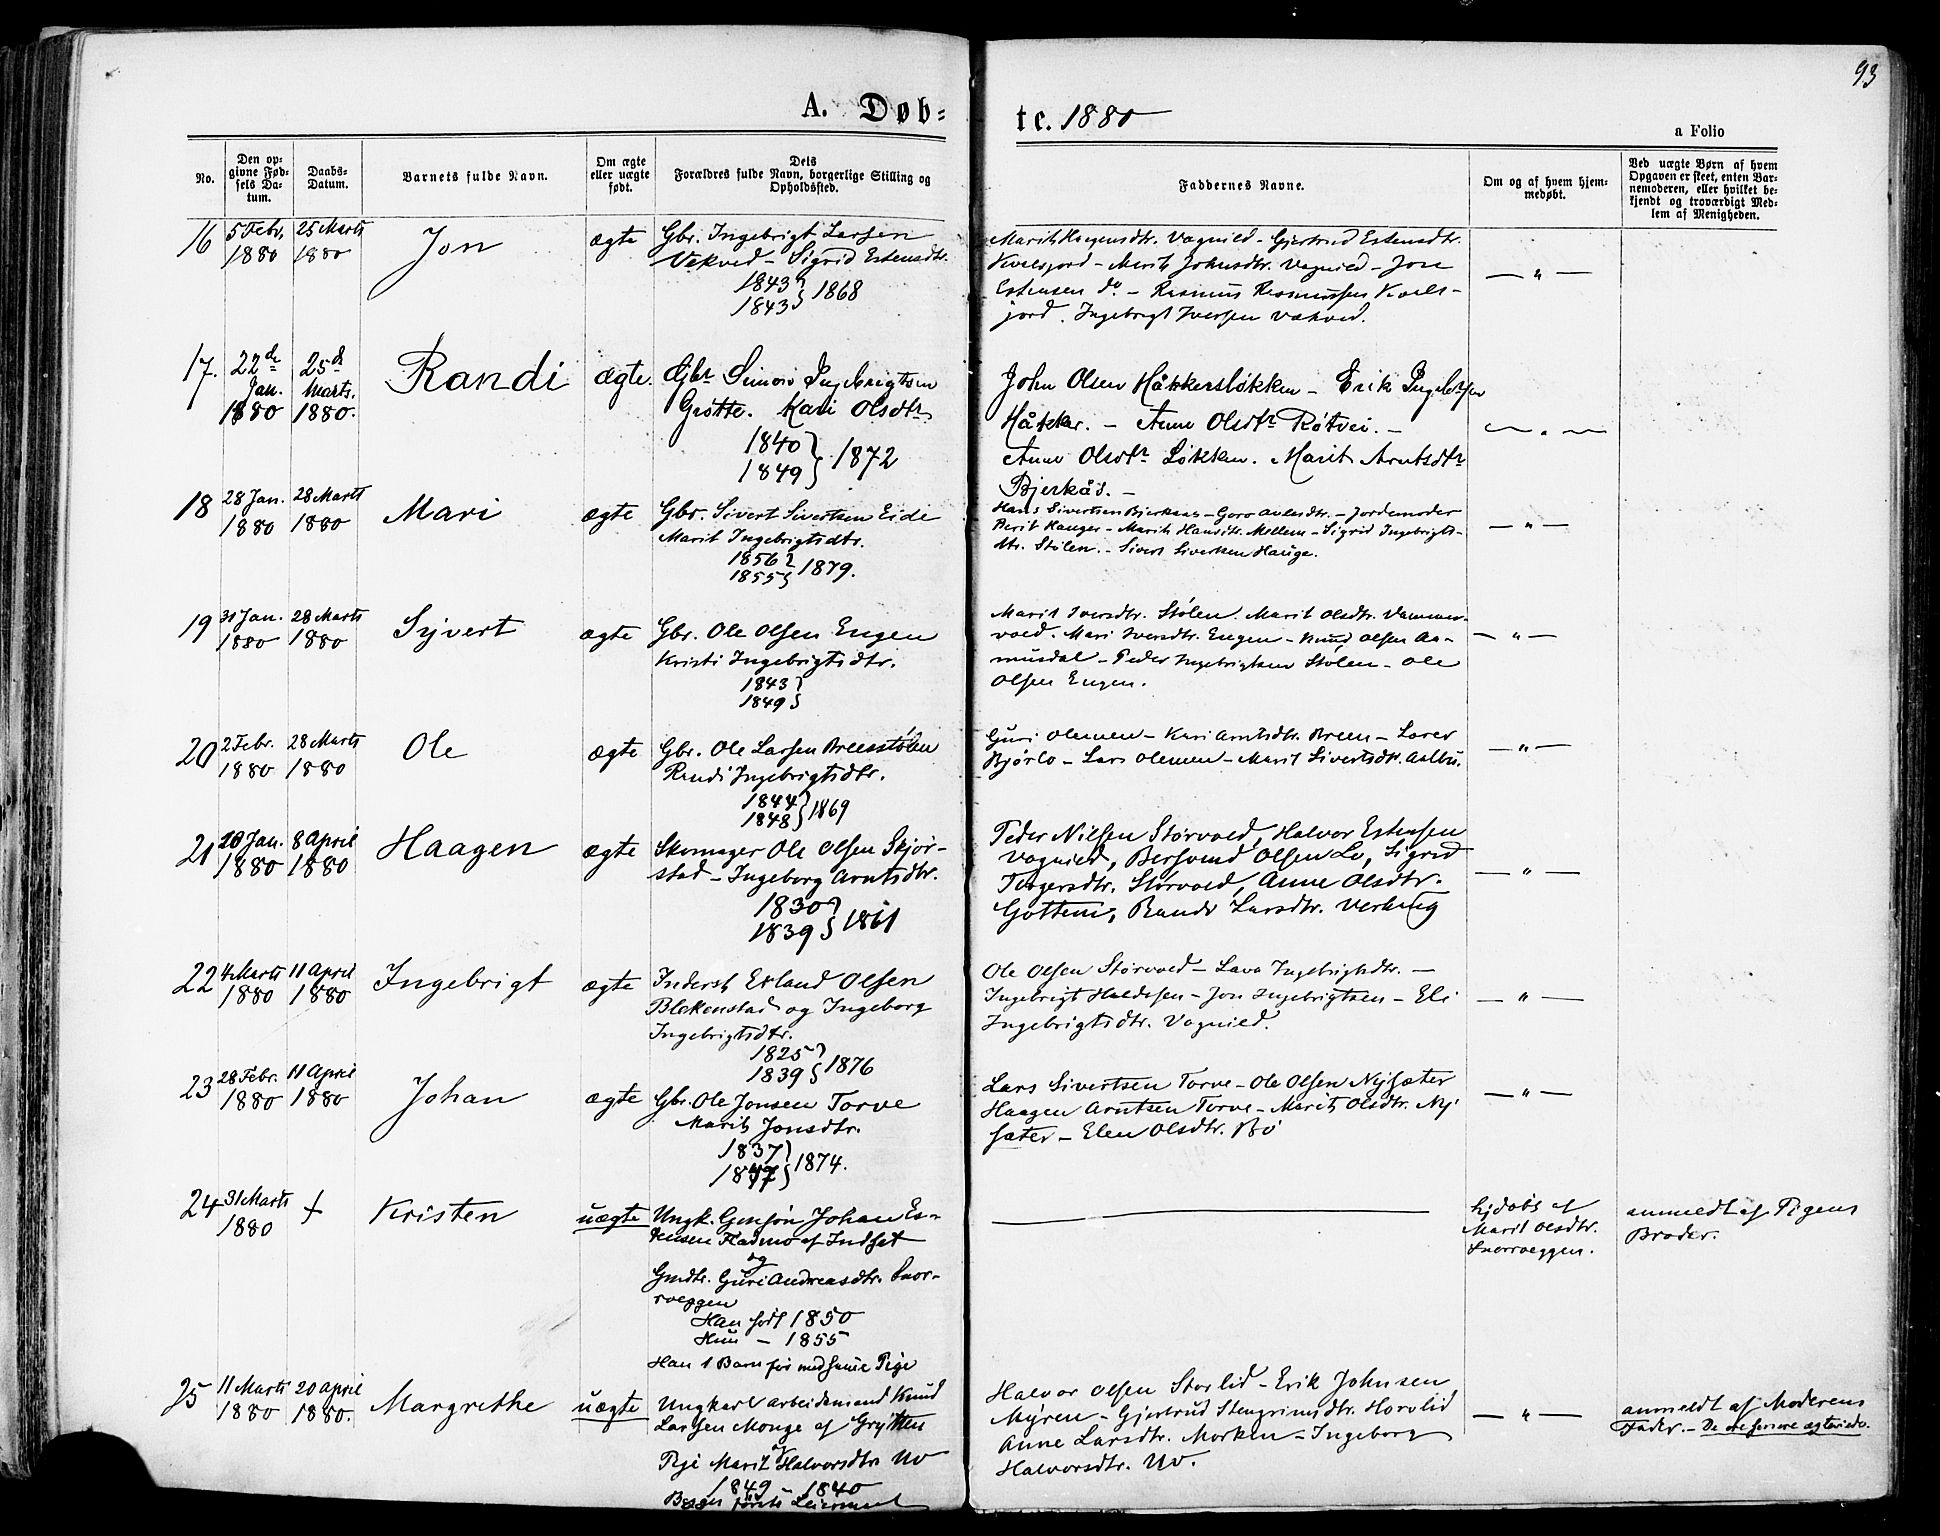 93
A. Døb=
te. 1880
a Folio
No.
Den op=
givne Fød=
sels Da=
tum.
Daabs=
Datum.
Barnets fulde Navn.
Om ægte
eller uægte
født.
Dets
Forældres fulde Navn, borgerlige Stilling og
Opholdssted.
Faddernes Navne.
Om og af hvem hjem=
medøbt.
Ved uægte Børn af hvem
Opgaven er skeet, enten Bar=
nemoderen, eller hvilket be=
kjendt og troværdigt Med=
lem af Menigheden.
16 5 Febr. 25 Marts Jon ægte Gbr. Ingebrigt Larsen
1880 1880 Vekved - Sigrid Estensdtr.
1843 } 1868
1843
Marit Haagensdtr. Vognild - Gjertrud Estensdtr.
Kvelsjord - Marit Johnsdtr. Vognild - Jon
Estensen do. - Rasmus Rasmussen Kvels-
jord. Ingebrigt Iversen Vekved.
— " —
17. 22de 25de Randi ægte. Gbr Simon Ingebrigtsen
Jan. Marts. Grøtte. Kari Olsdtr
1880 1880.
1840 } 1872
1849
John Olsen Håkkersløkken - Erik Ingebrsen
Håkker. - Anne Olsdtr Røtvei. -
Anne Olsdtr Løkken. Marit Arntsdtr
Bjerkås. -
— " —
18 28 Jan. 28 Marts Mari ægte Gbr. Sivert Sivertsen Eide
1880 1880 Marit Ingebrigtsdtr.
1856 } 1879.
1855
Hans Sivertsen Bjerkaas - Goro - Jordemoder
Berit Hauger - Marit Hansdtr. Mellem - Sigrid Ingebrigts-
dtr. Stølen. - Sivert Sivertsen Hauge.
— " —
19 31 Jan. 28 Marts Syvert ægte Gbr. Ole Olsen Engen
1880 1880 Kristi Ingebrigtsdtr.
1843 }
1849
Marit Iversdtr. Stølen. Marit Olsdtr. Vammer-
vold. Mari Iversdtr. Engen - Knud Olsen Aa-
musdal - Peder Ingebrigtsen Stølen - Ole
Olsen Engen.
— " —
20 2 Febr. 28 Marts Ole ægte Gbr. Ole Larsen Breesstølen
1880 1880 Randi Ingebrigtsdtr.
1844 } 1869
1848
Guri Olemoen - Kari Arntsdtr. Breen - Lars
Bjørlo - Lars Olemoen - Marit Sivertsdtr. Aalbu.
— " —
21 20 Jan. 8 April Haagen ægte Skomager Ole Olsen Skjør-
1880 1880 stad - Ingeborg Arntsdtr.
1830 } 1861
1839
Peder Nilsen Størvold, Halvor Estensen
Vognild, Bersvend Olsen Lo, Sigrid
Torgersdtr. Størvold, Anne Olsdtr.
Gottem, Randi Larsdtr.
— " —
22 4 Marts 11 April Ingebrigt ægte Inderst Erland Olsen
1880 1880 Blekenstad og Ingeborg
Ingebrigtsdtr.
1825 } 1876
1839
Ole Olsen Størvold - Lava Ingebrigtsdtr. -
Ingebrigt Haldosen - Jon Ingebrigtsen - Eli
Ingebrigtsdtr. Vognild.
— " —
23 28 Febr. 11 April Johan ægte Gbr. Ole Jonsen Torve
1880 1880 Marit Jonsdtr.
1837 } 1874.
Lars Sivertsen Torve - Ole Olsen Nysæter
Haagen Arntsen Torve - Marit Olsdtr. Ny-
sæter - Elen Olsdtr. Bø
— " —
24 31 Marts † Kristen uægte Ungk. Gmsøn Johan Es-
1880 tensen Fladmo af Indset
og
Gmdtr. Guri Andreasdtr. Snor-
roeggen
Han født 1850
Hun - 1855
Han 1 Barn før med samme Pige
hjdøbt af
Marit Olsdtr.
Snorroeggen.
anmeldt af Pigens
Broder.
25 11 Marts 20 April Margrethe uægte Ungkarl Arbeidsmand Knud
1880 1880. Larsen Monge af Grytten
Pige Marit Halvorsdtr. Uv
1849 - 1840
Begges første Leiermaal
Halvor Olsen Storlid - Erik Johnsen
Myren - Gjertrud Stengrimsdtr. Horvlid
Anne Larsdtr. Morken - Ingeborg
Halvorsdtr. Uv.
— " —
anmeldt af Moderens
Fader. - De ere senere ægteviede.